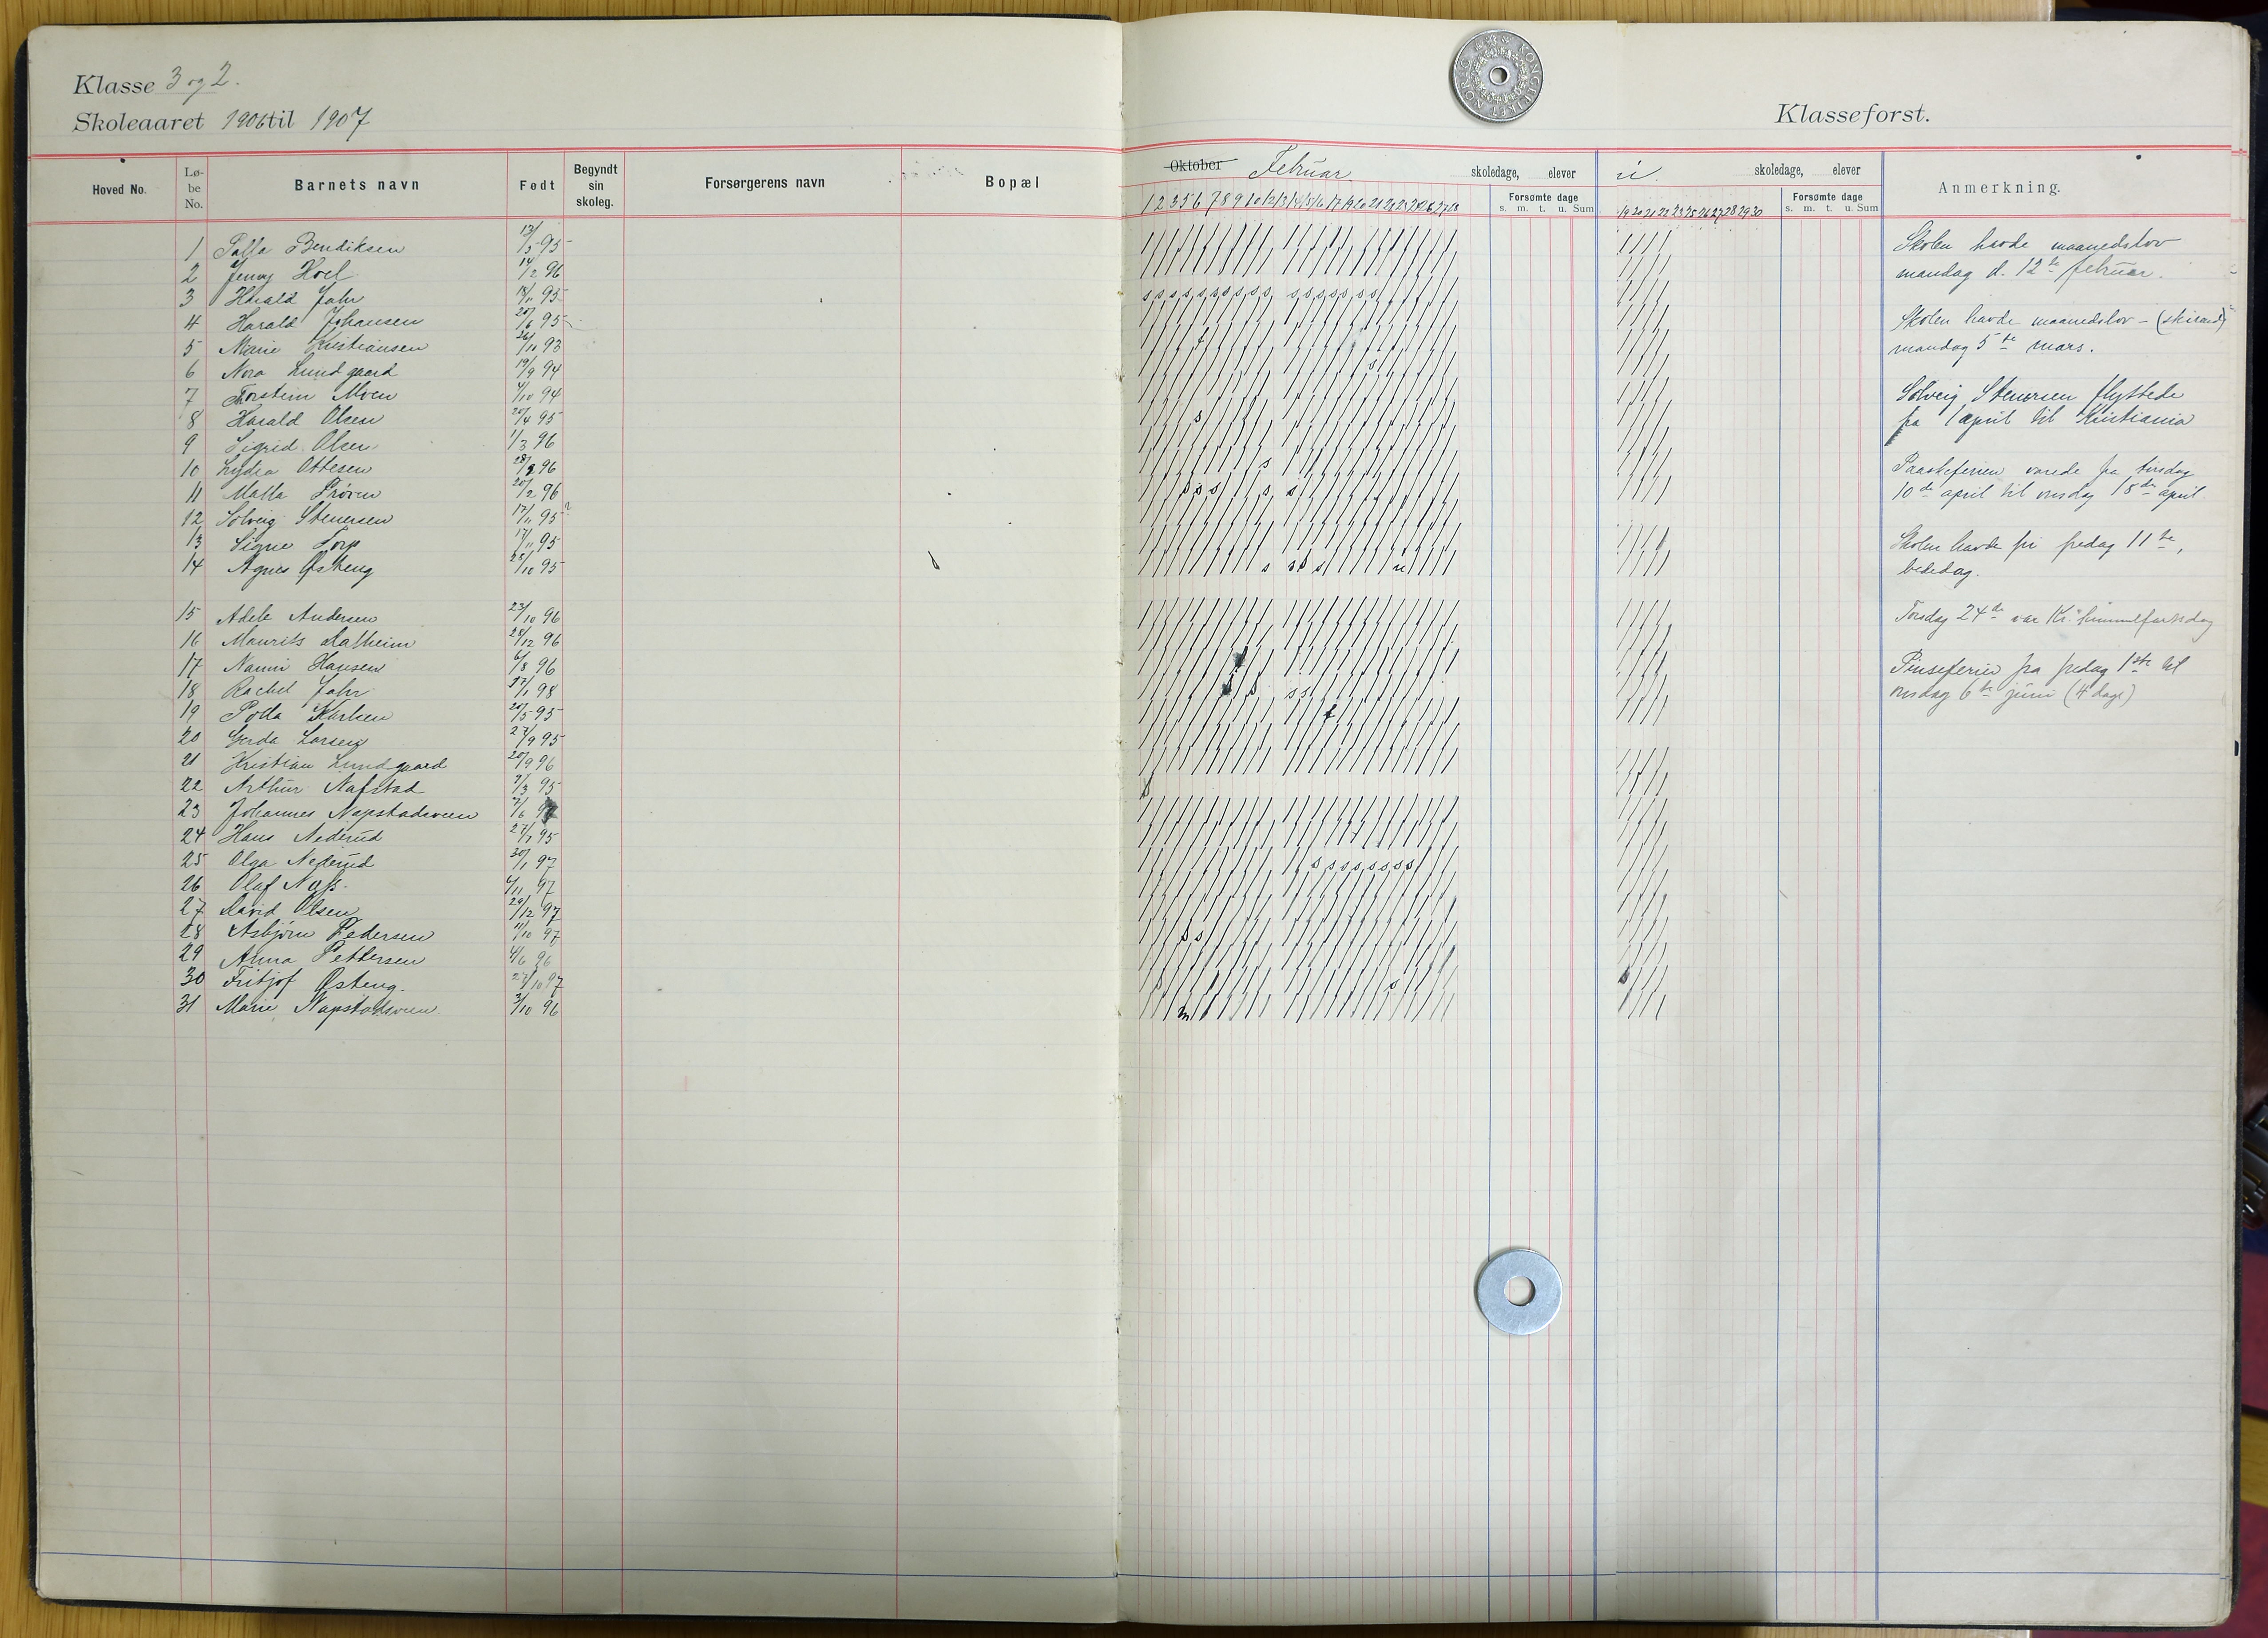 Klasse 3 og 2.
Skoleaaret 1906 til 1907
Klasseforst.
Hoved No.
Lø-
be
No.
Barnets navn
Født
Begyndt
sin
skoleg.
Forsørgerens navn
Bopæl
Oktober Februar
skoledage, elever
Forsømte dage
s. m. t. u. Sum
1 2 3 5 6 7 8 9 10 12 13 14 15 16 17 19 20 21 22 23 24 26 27 28
skoledage, elever
Forsømte dage
s. m. t. u. Sum
19 20 21 22 23 25 26 27 28 29 30
Anmerkning.
1 Palla Bendiksen 13/5 95
2 Jenny Hoel 14/2 96
3 Harald Jahr 18/11 95
4 Harald Johansen 20/6 95
5 Marie Kristiansen 26/10 93
6 Nora Lundgaard 19/9 94
7 Torstein Moen 4/10 94
8 Harald Olsen 20/4 95
9 Sigrid Olsen 1/3 96
10 Lydia Ottesen 28/3 96
11 Malla Prøven 20/2 96
12 Solveig Stenersen 17/11 95
13 Signe Torp 17/11 95
14 Agnes Østeng 25/10 95
15 Adele Andersen 23/10 96
16 Maurits Dalheim 28/12 96
17 Nanni Hansen 6/8 96
18 Rachel Jahr 98
19 Poda Karlsen 20/5 95
20 Gerda Larsen 27/9 95
21 Kristian Lundgaard 28/9 96
22 Arthur Nafstad 95
23 Johannes Napstadsveen
24 Hans Nederud 27/7 95
25 Olga Nederud 30/1 97
26 Olaf Næss. 4/11 97
27 David Olsen 29/12 97
28 Asbjørn Pedersen 11/10 97
29 Anna Pettersen 4/6 96
30 Fritjof Østeng. 27/10 97
31 Marie Napstadsveen 3/10 96
Skolen havde maanedslov
mandag d. 12te februar.
Skolen havde maanedslov - (skirend)
mandag 5te mars.
Solveig Stenersen flyttede
fra 1 april til Kristiania
Paaskeferien varede fra tirsdag
10de april til onsdag 18de april
Skolen havde fri fredag 11te,
bededag.
Torsdag 24de var Kr. himmelfartsdag
Pinseferie fra fredag 1ste til
onsdag 6te juni (4 dage)
KONGERIKET NORGE